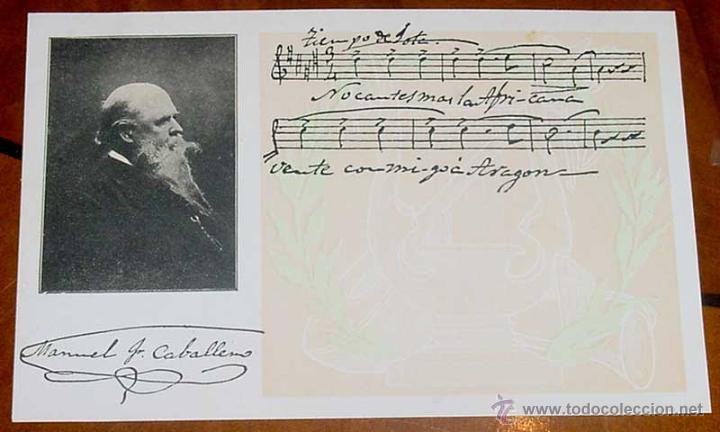 Tiempo de Jota.
3
4
No cantes mas la Afri-cana
vente con mi-go á Aragon
Manuel F. Caballero
www.todocoleccion.net